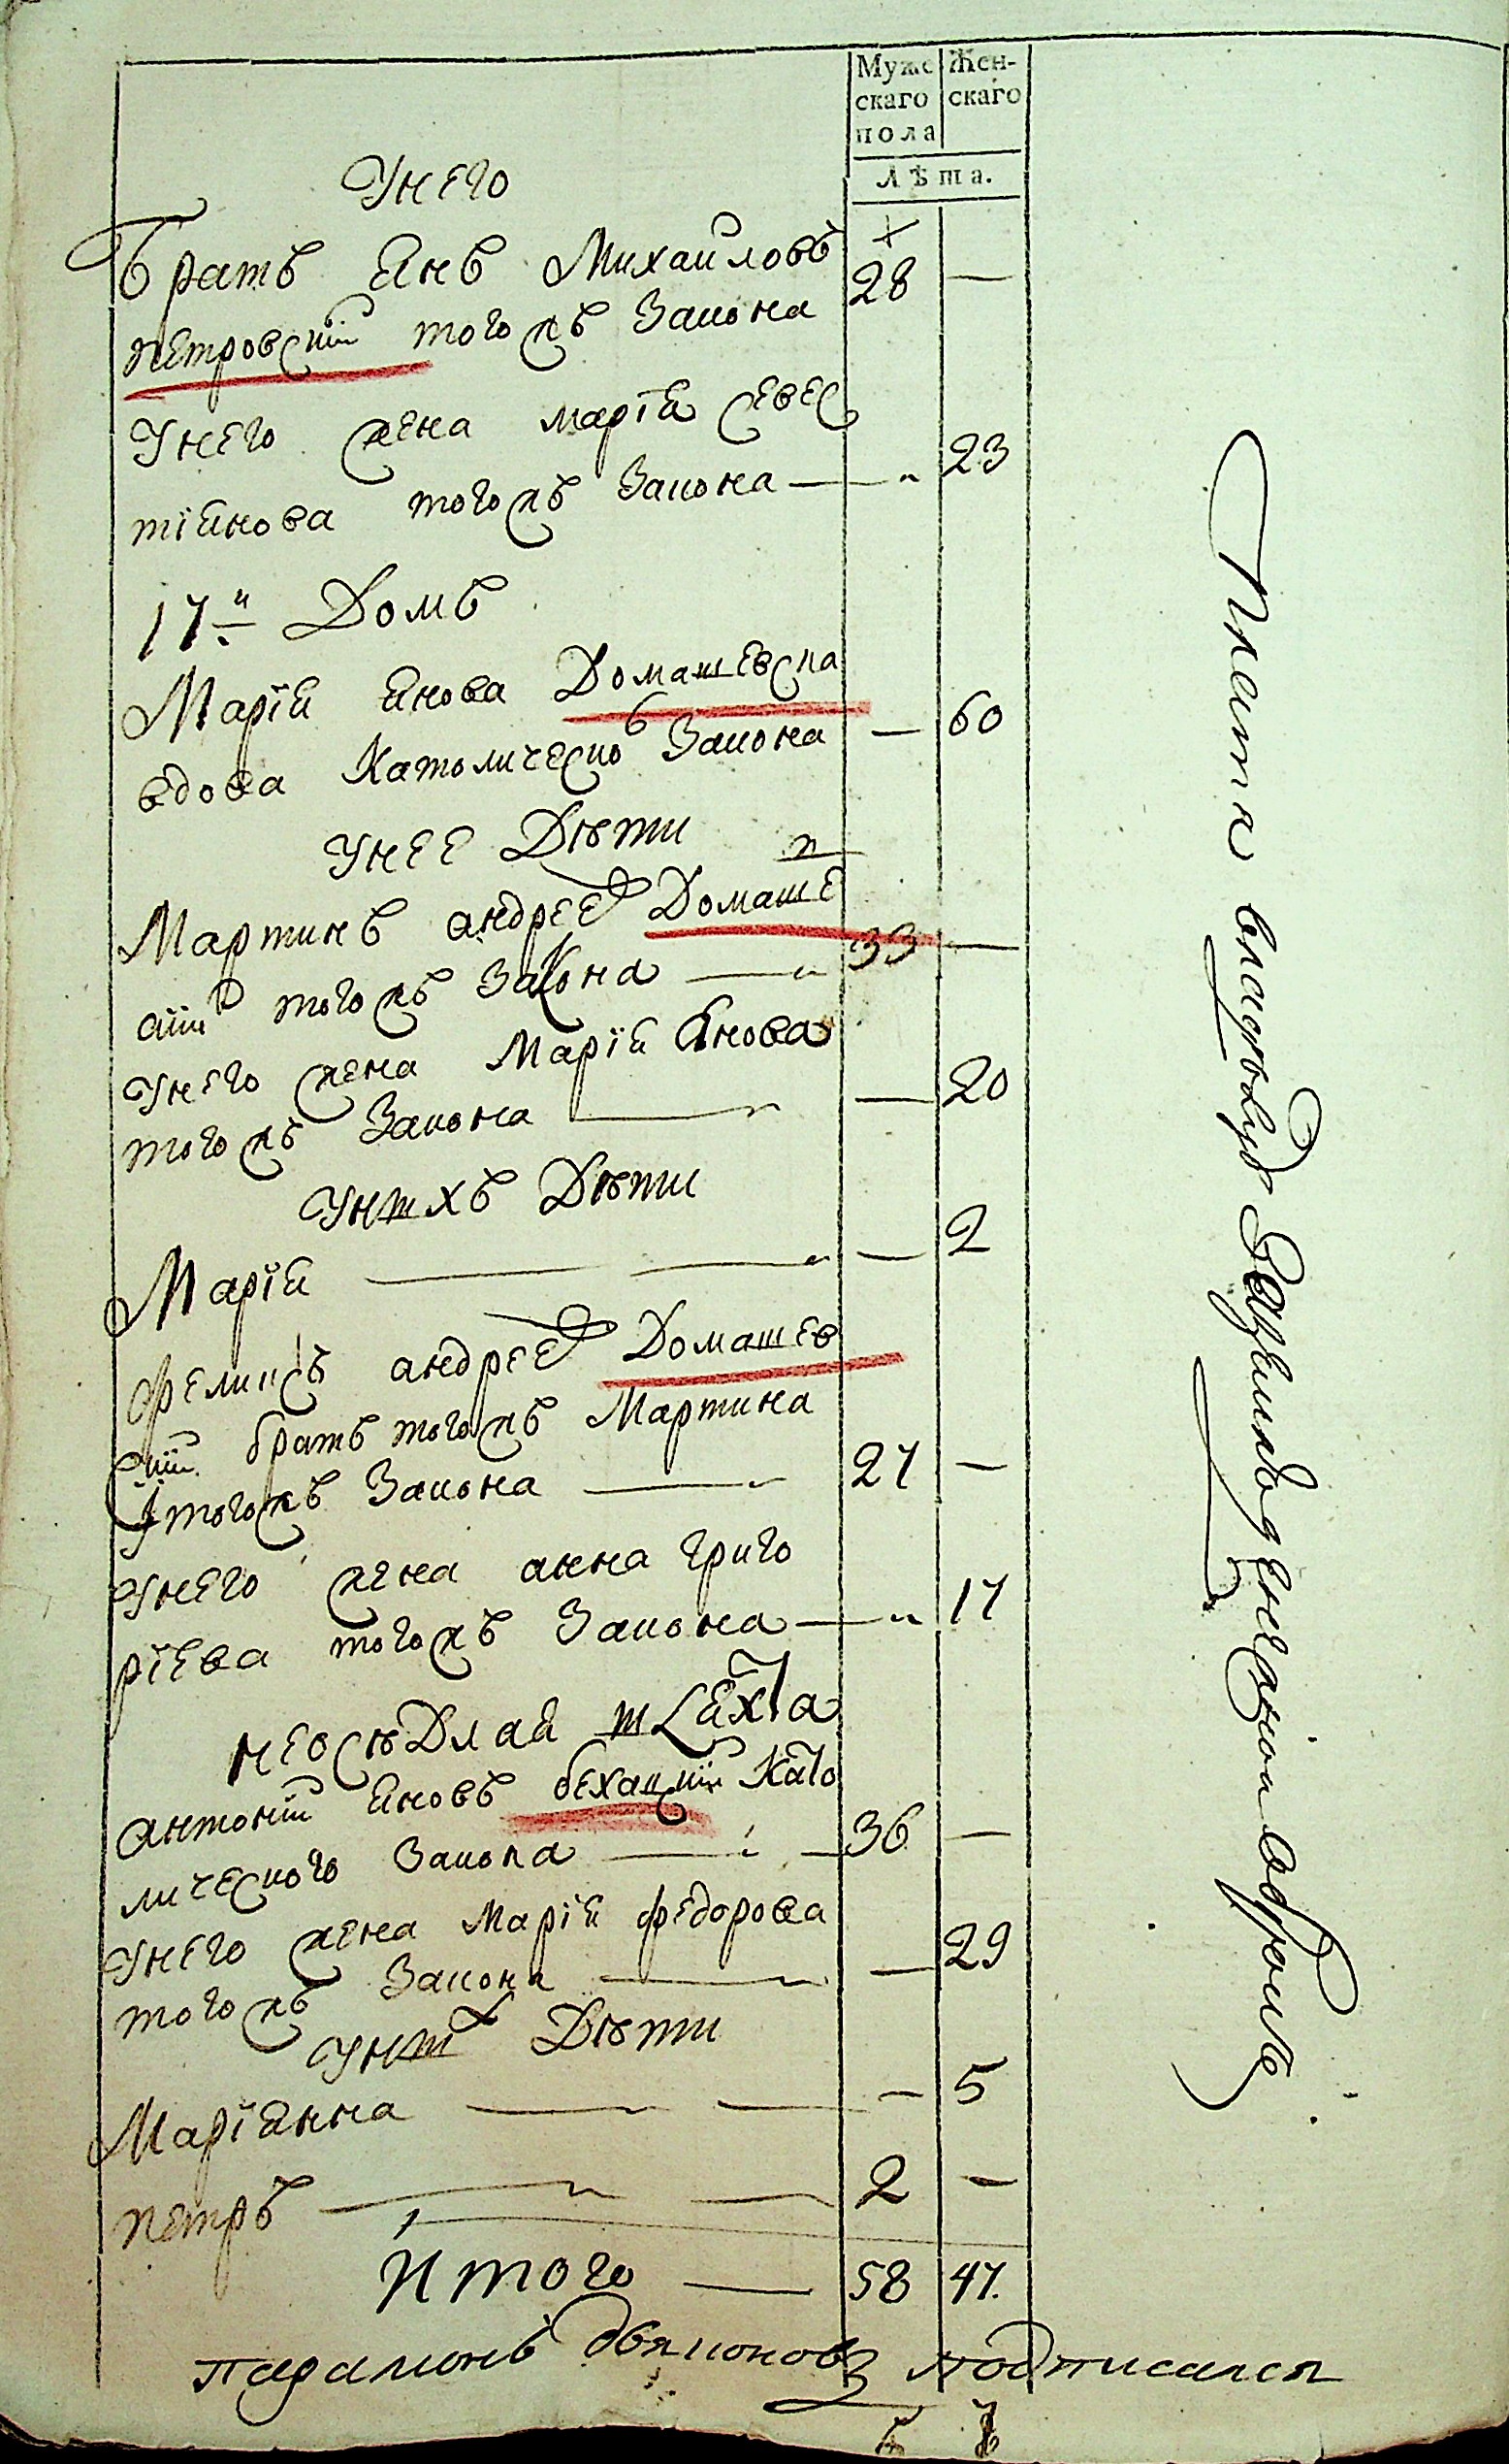 Мужс Жен-
скаго скаго
пола
Лѣта.
Унего
Братъ Янъ Михаиловъ 28 —
петровскіи тогожъ Закона
Унего жена марія Севес
тіянова тогожъ Закона — 23
17й Домъ
Марія Янова Домашевска
вдова Католическо Закона — 60
Унее Дѣти
Мартинъ андреев Домаше 33 —
скіи тогожъ Закона
Унего жена Марія Янова
тогожъ Закона — 20
Унихъ Дѣти
Марія — 2
Феликсъ андреев Домашев
скіи братъ тогожъ Мартина
Ітогожъ Закона 27 —
Унего жена анна григо
ріева тогожъ Закона — 17
неосѣдлая шляхта
антоніи Яновъ бехацкіи Като
лического Закона 36 —
Унего жена Марія федорова
тогожъ Закона — 29
Уних Дѣти
Маріянна — 5
петръ 2 —
Итого — 58 47.
парамонъ подписался